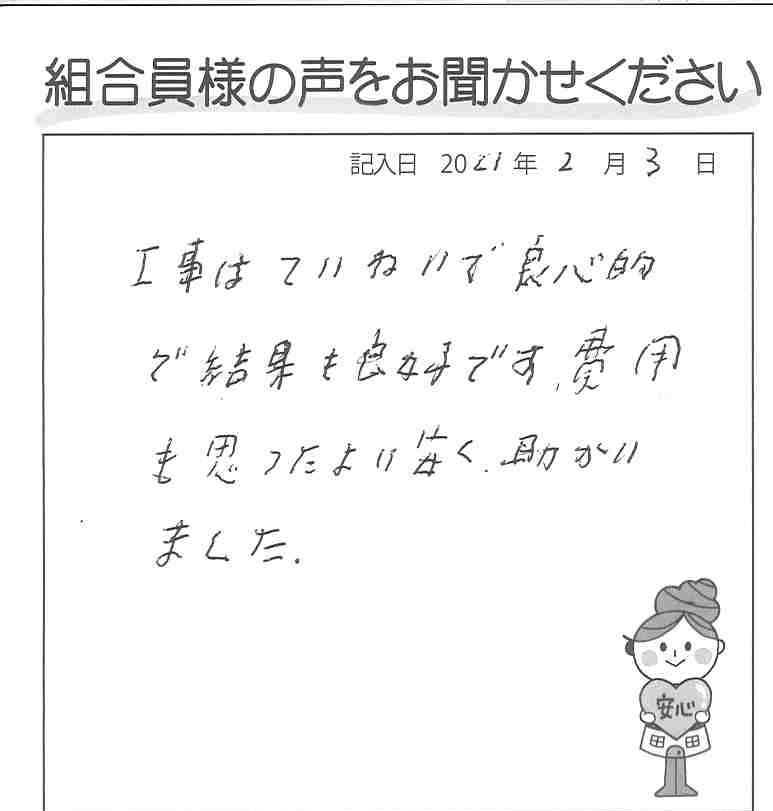 組合員様の声をお聞かせください
記入日 2021年 2月 3日
工事はていねいで良心的
で結果も良好です。費用
も思ったより安く、助かり
ました。
安心